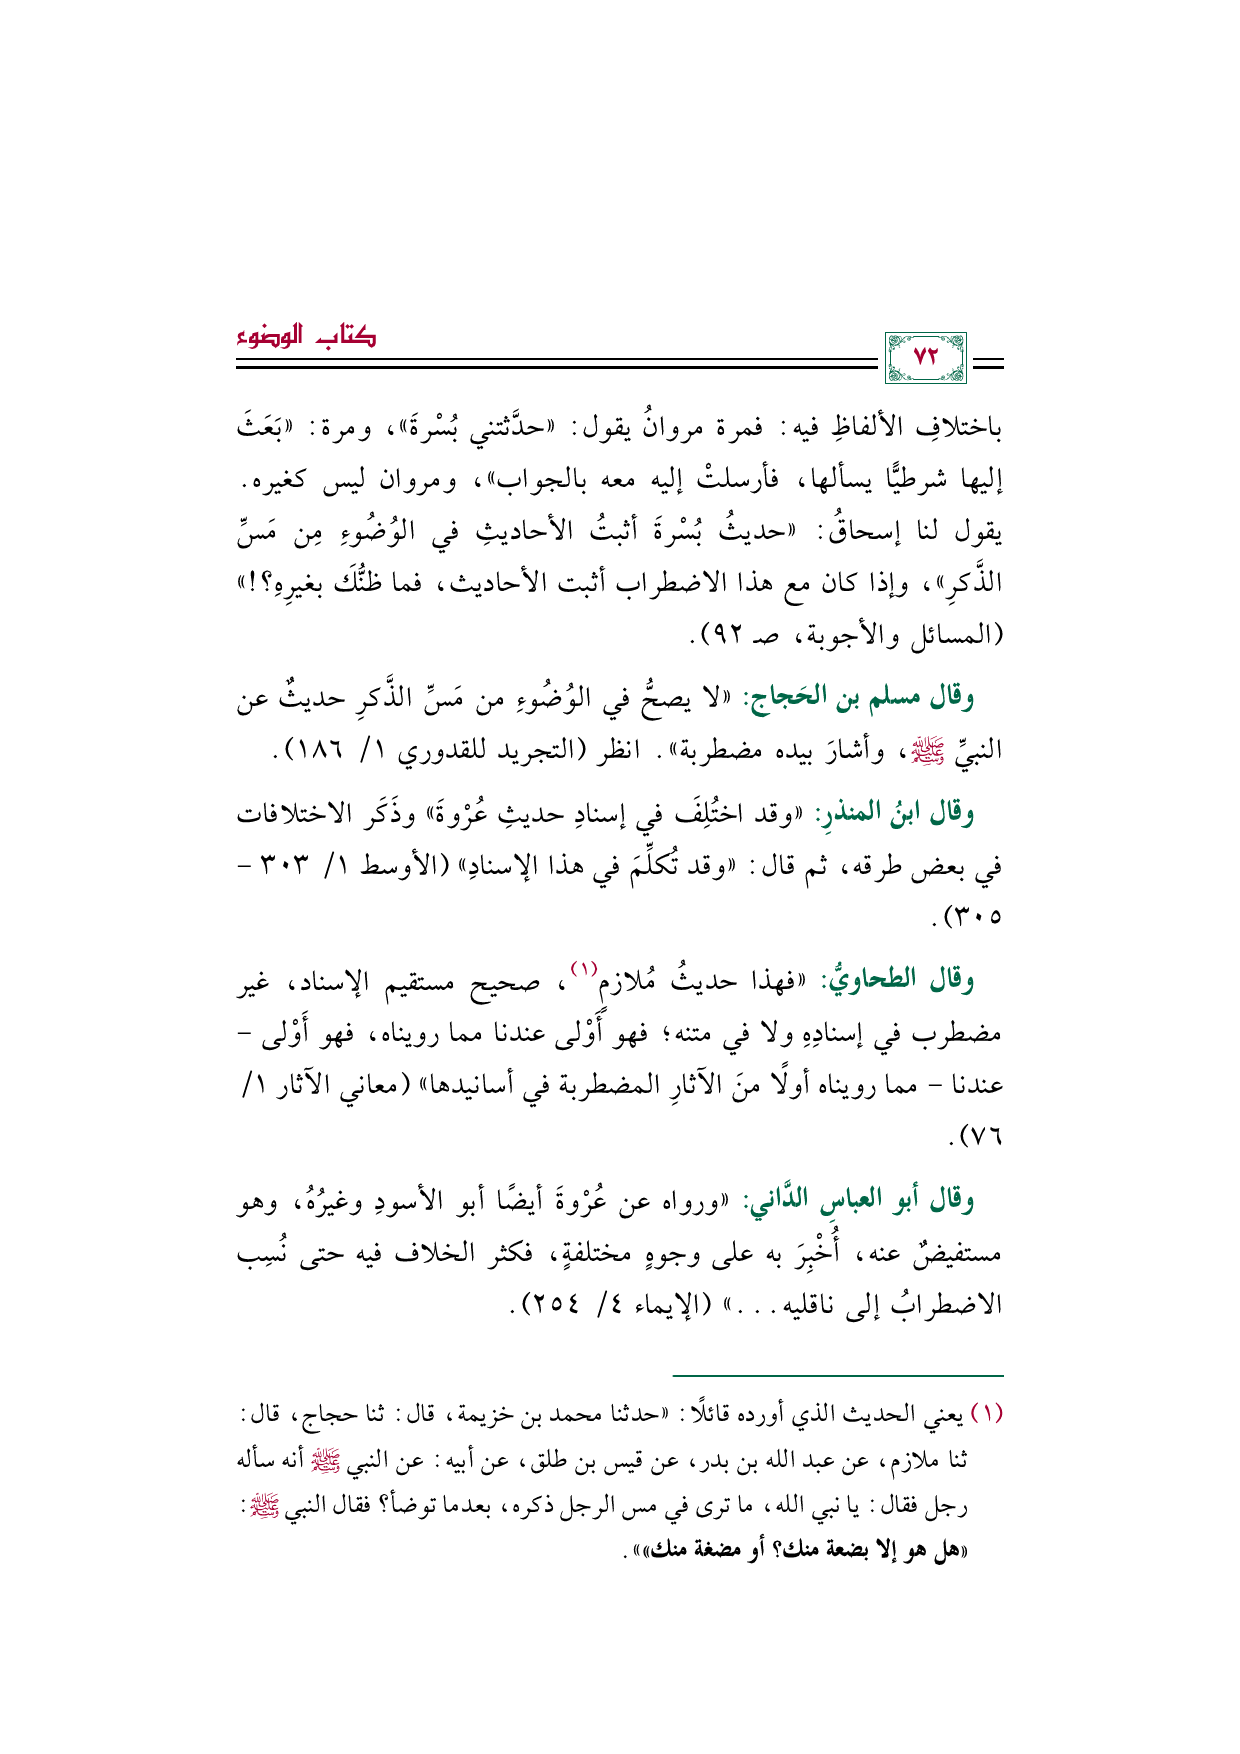 كتاب الوضوء
٧٢
باختلافِ الألفاظِ فيه: فمرة مروانُ يقول: «حدَّثتني بُسْرةَ»، ومرة: «بَعَثَ
إليها شرطيًّا يسألها، فأرسلتْ إليه معه بالجواب»، ومروان ليس كغيره.
يقول لنا إسحاقُ: «حديثُ بُسْرةَ أثبتُ الأحاديثِ في الوُضُوءِ مِن مَسِّ
الذَّكرِ»، وإذا كان مع هذا الاضطراب أثبت الأحاديث، فما ظنُّكَ بغيرِهِ؟!»
(المسائل والأجوبة، صـ ٩٢).
وقال مسلم بن الحَجاج: «لا يصحُّ في الوُضُوءِ من مَسِّ الذَّكرِ حديثٌ عن
النبيِّ ﷺ، وأشارَ بيده مضطربة». انظر (التجريد للقدوري ١/ ١٨٦).
وقال ابنُ المنذرِ: «وقد اختُلِفَ في إسنادِ حديثِ عُرْوةَ» وذَكَر الاختلافات
في بعض طرقه، ثم قال: «وقد تُكلِّمَ في هذا الإسنادِ» (الأوسط ١/ ٣٠٣ -
٣٠٥).
وقال الطحاويُّ: «فهذا حديثُ مُلازمٍ(١)، صحيح مستقيم الإسناد، غير
مضطرب في إسنادِهِ ولا في متنه؛ فهو أَوْلى عندنا مما رويناه، فهو أَوْلى -
عندنا - مما رويناه أولًا منَ الآثارِ المضطربة في أسانيدها» (معاني الآثار ١/
٧٦).
وقال أبو العباسِ الدَّاني: «ورواه عن عُرْوةَ أيضًا أبو الأسودِ وغيرُهُ، وهو
مستفيضٌ عنه، أُخْبِرَ به على وجوهٍ مختلفةٍ، فكثر الخلاف فيه حتى نُسِب
الاضطرابُ إلى ناقليه...» (الإيماء ٤/ ٢٥٤).
(١) يعني الحديث الذي أورده قائلًا: «حدثنا محمد بن خزيمة، قال: ثنا حجاج، قال:
ثنا ملازم، عن عبد الله بن بدر، عن قيس بن طلق، عن أبيه: عن النبي ﷺ أنه سأله
رجل فقال: يا نبي الله، ما ترى في مس الرجل ذكره، بعدما توضأ؟ فقال النبي ﷺ:
«هل هو إلا بضعة منك؟ أو مضغة منك»».